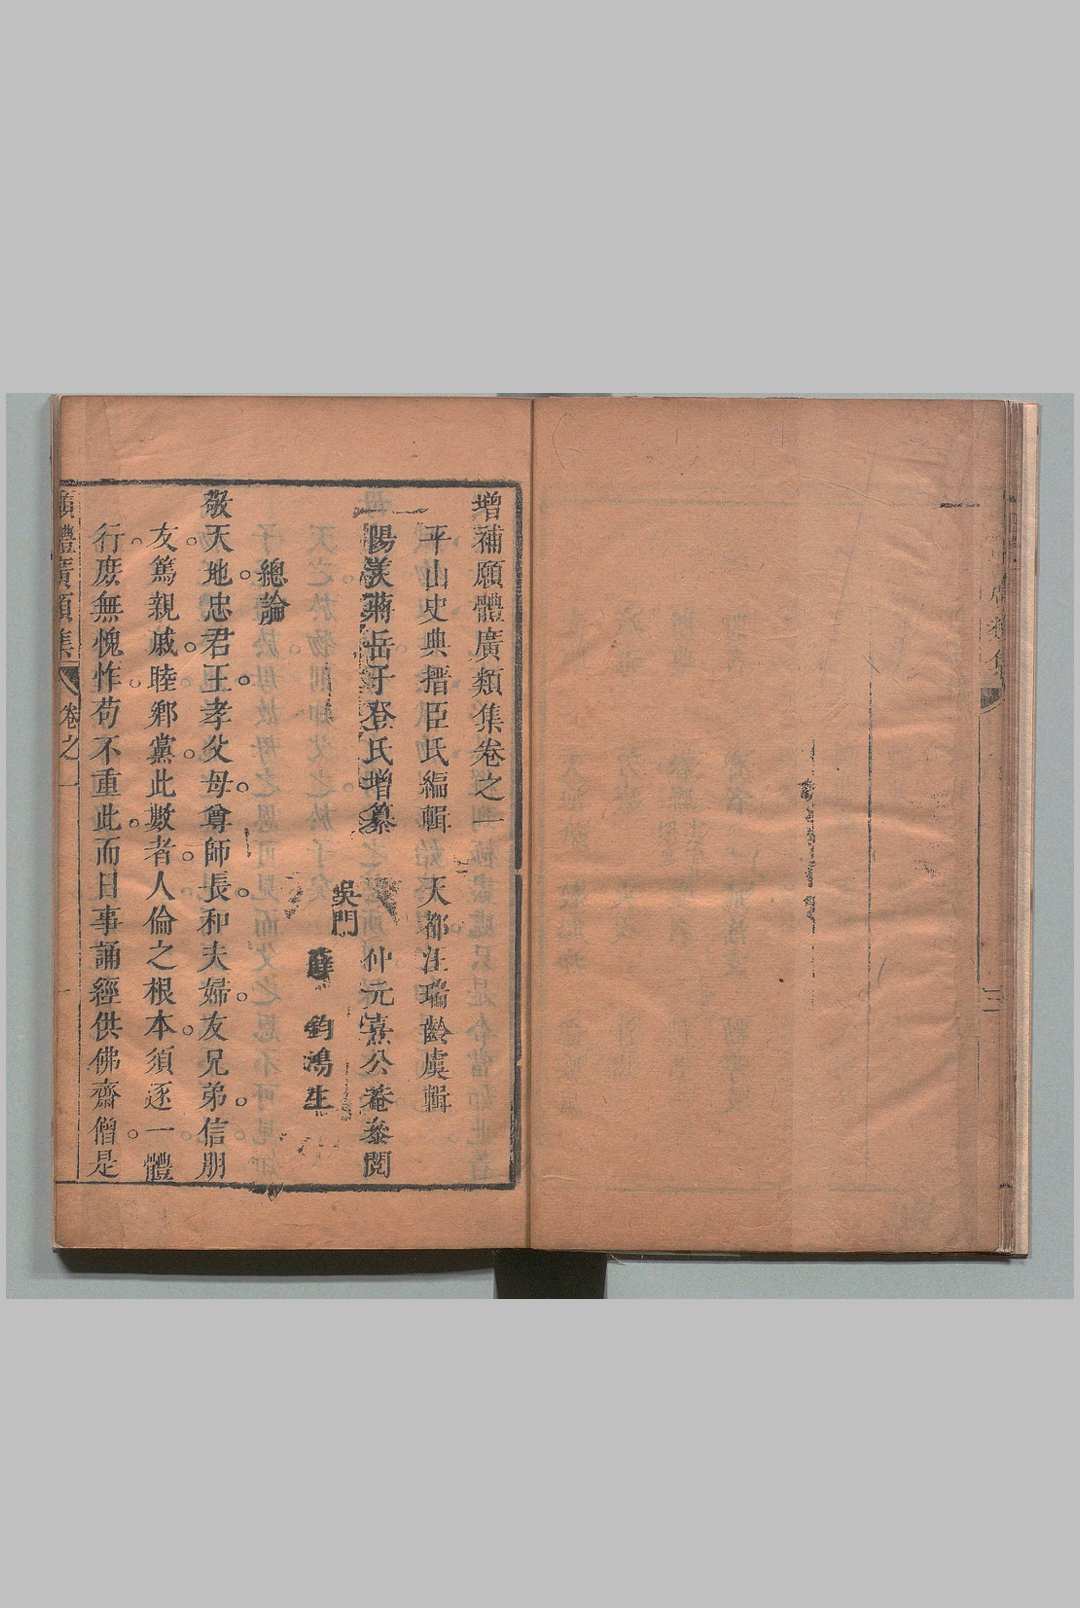 增補願體廣類集卷之一
平山史典搢臣氏編輯　天都汪瑞齡虞輯
陽羨蔣岳于登氏增纂　仲元熹公菴叅閱
吳門
薛　鈞鴻生
總論
敬天地忠君王孝父母尊師長和夫婦友兄弟信朋
友篤親戚睦鄉黨此數者人倫之根本須逐一體
行庶無愧怍苟不重此而日事誦經供佛齋僧是
體廣類集　卷之一